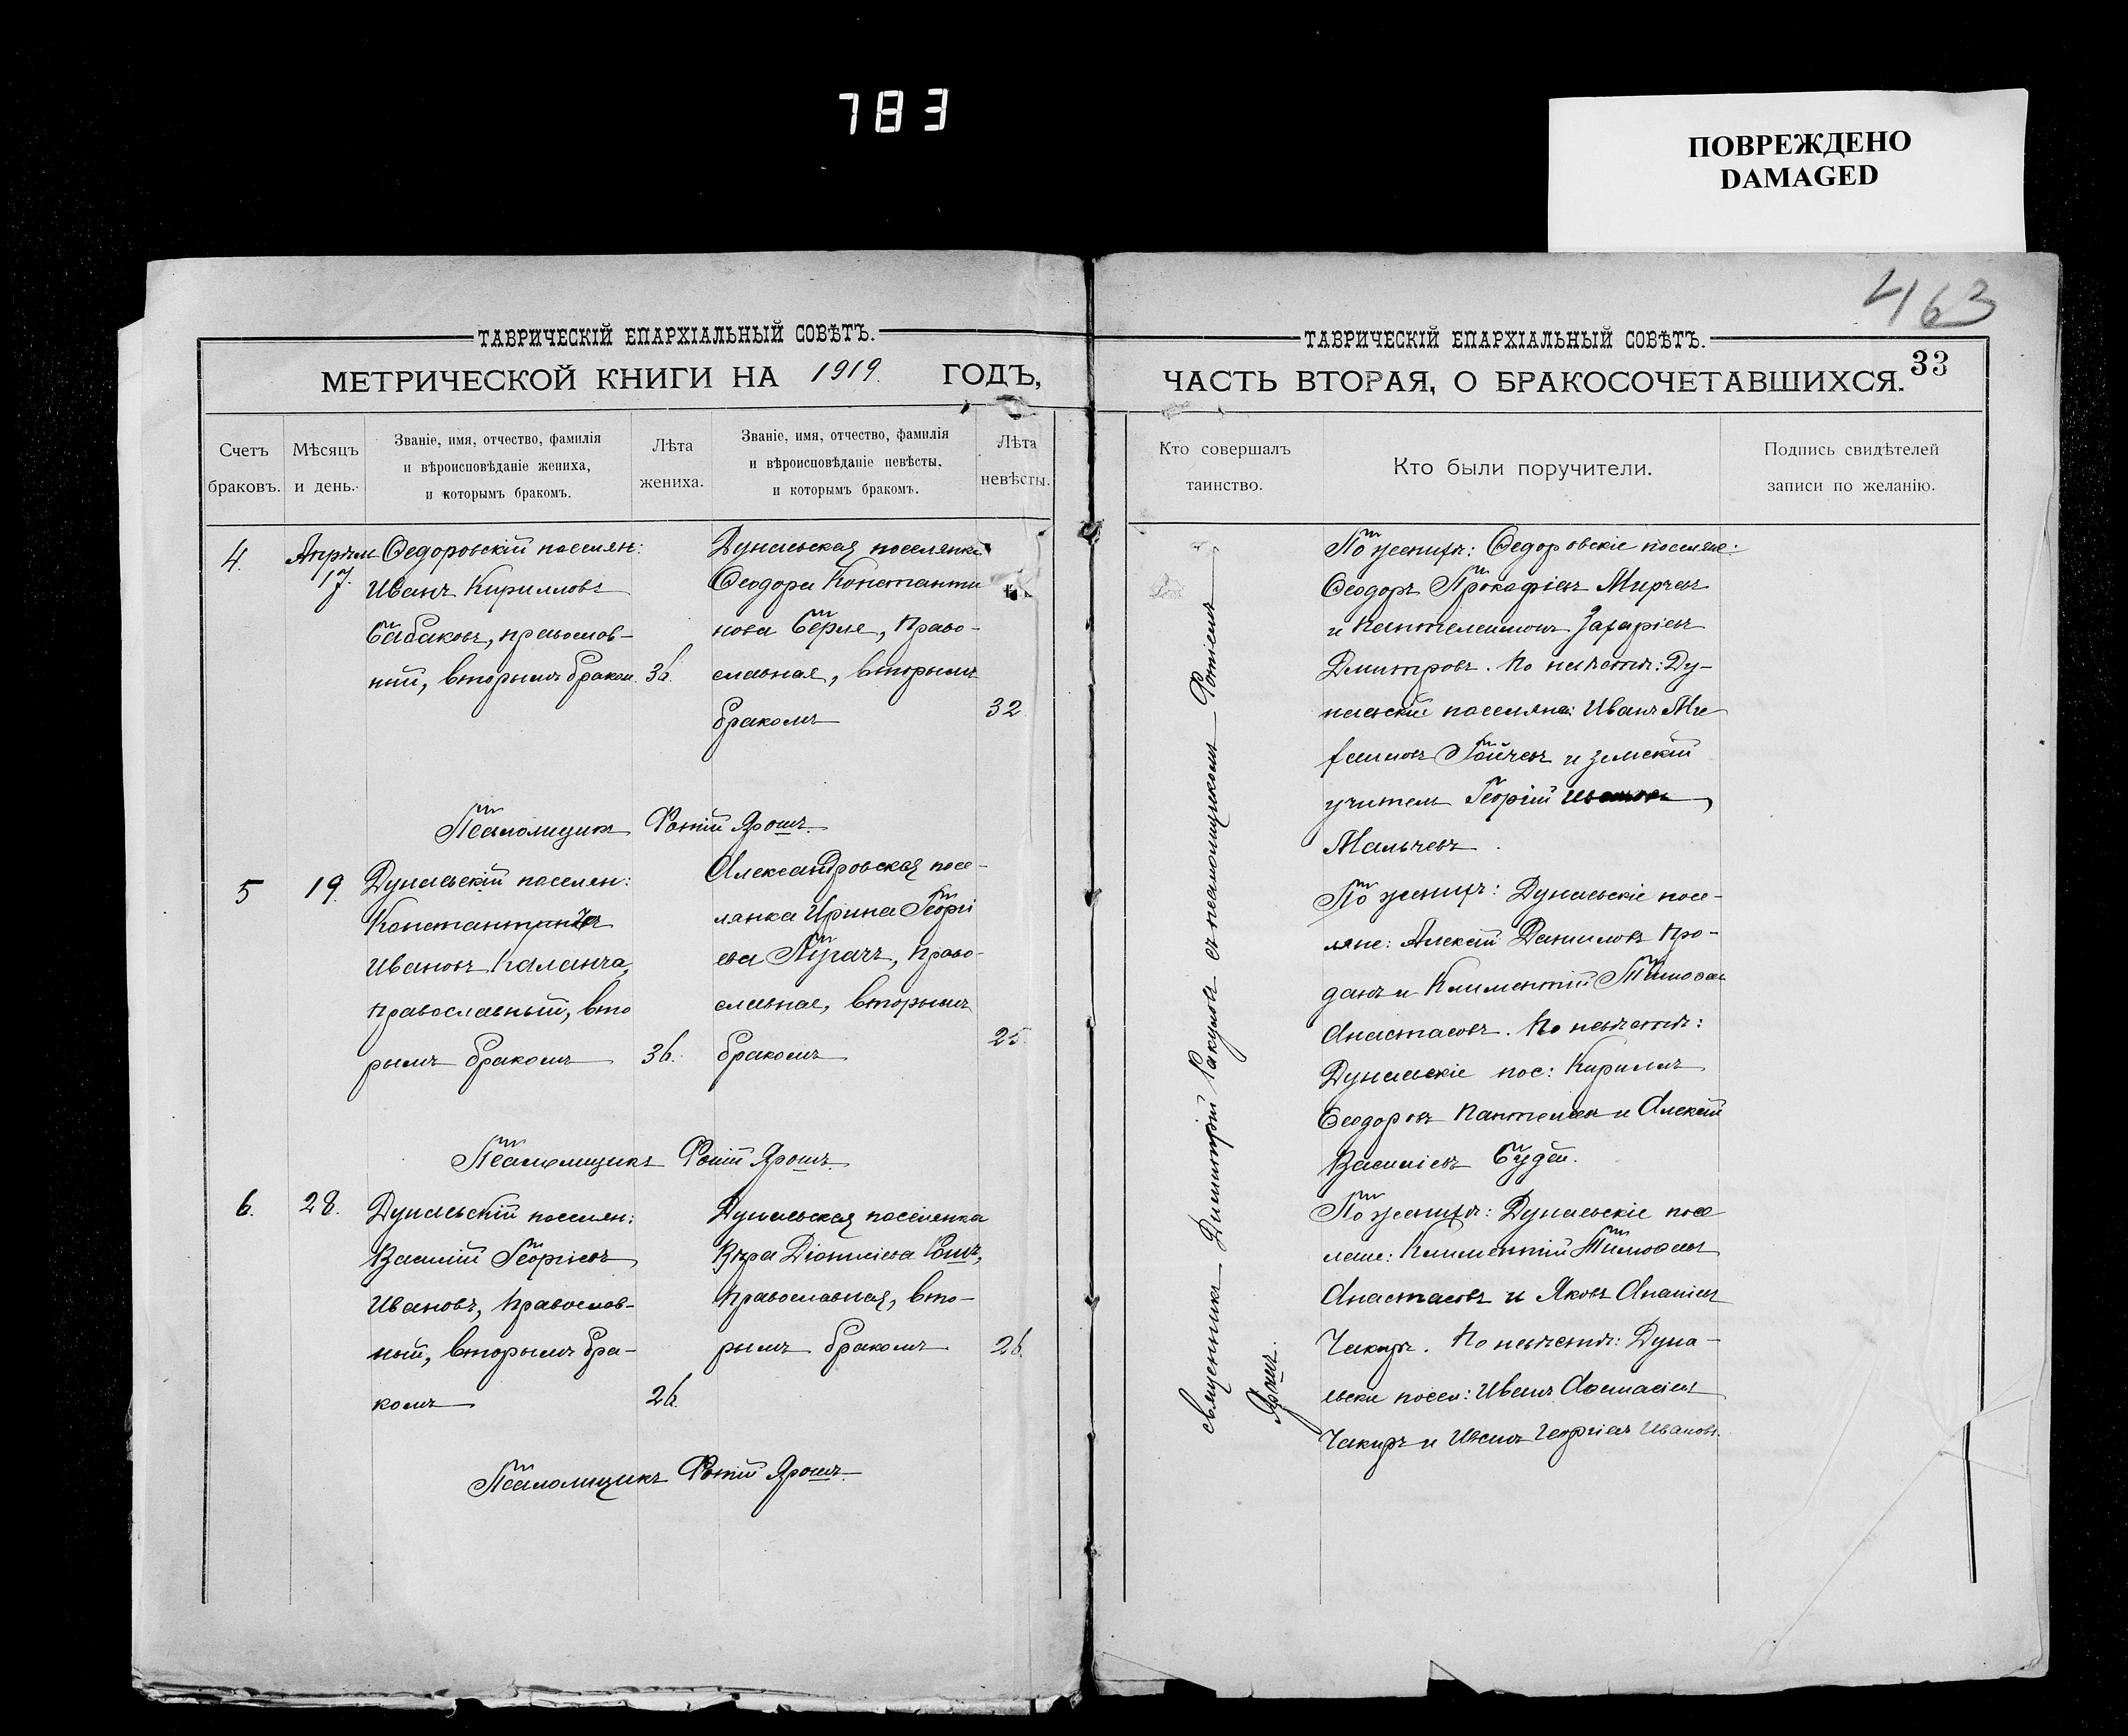 783
ПОВРЕЖДЕНО
DAMAGED
463
ТАВРИЧЕСКІЙ ЕПАРХІАЛЬНЫЙ СОВѢТЪ.
МЕТРИЧЕСКОЙ КНИГИ НА 1919. ГОДЪ,
Счетъ браковъ.
Мѣсяцъ и день.
Званіе, имя, отчество, фамилія
и вѣроисповѣданіе жениха,
и которымъ бракомъ.
Лѣта
жениха.
Званіе, имя, отчество, фамилія
и вѣроисповѣданіе невѣсты,
и которымъ бракомъ.
Лѣта
невѣсты.
4.
Апрѣль
17.
Ѳедоровскій поселян:
Иванъ Кирилловъ
Сабаковъ, православ-
ный, вторымъ браком.
36.
Дунаевская поселянка
Ѳеодора Константи
нова, Право-
славная, вторымъ
бракомъ
32
Псаломщикъ Фотій Ярошъ.
5
19.
Дунаевскій поселян:
Константинъ
Ивановъ Каланча,
православный, вто
рымъ бракомъ
36.
Александровская посе-
лянка Ирина Георгі
ева Пугачъ, Право-
славная, вторымъ
бракомъ
25.
Псаломщикъ Фотій Ярошъ.
6.
28.
Дунаевскій поселян:
Василій Георгіевъ
Ивановъ, православ-
ный, вторымъ бра-
комъ
26.
Дунаевская поселянка
Вѣра Діонисіева
Православная, вто-
рымъ бракомъ
26.
Псаломщикъ Фотій Ярошъ.
ТАВРИЧЕСКІЙ ЕПАРХІАЛЬНЫЙ СОВѢТЪ.
ЧАСТЬ ВТОРАЯ, О БРАКОСОЧЕТАВШИХСЯ.
33
Кто совершалъ
таинство.
Кто были поручители.
Подпись свидѣтелей
записи по желанію.
священникъ Димитрій съ псаломщикомъ Фотіемъ
Ярошъ.
По женихѣ: Ѳедоровскіе поселяне:
Ѳеодоръ Прокофіевъ Мирчевъ
и Пантелеимонъ Захаріевъ
Дмитровъ. По невѣстѣ: Ду-
наевскіе поселяне: Иванъ Ми
хаиловъ Гайчевъ и земскій
учитель Георгій
Мальчевъ.
По женихѣ: Дунаевскіе посе-
ляне: Алексій Даниловъ Про-
данъ и Климентій Тимоѳеев
Анастасовъ. По невѣстѣ:
Дунаевскіе пос: Кириллъ
Ѳеодоровъ Пантелеев и Алексій
Василіевъ
По женихѣ: Дунаевскіе посе
ляне: Климентій Тимоѳеев
Анастасовъ и Яковъ Ананіев
Чакиръ. По невѣстѣ: Дуна-
евски посел: Иванъ Аѳанасіев
Чакиръ и Иванъ Георгіев Ивановъ.